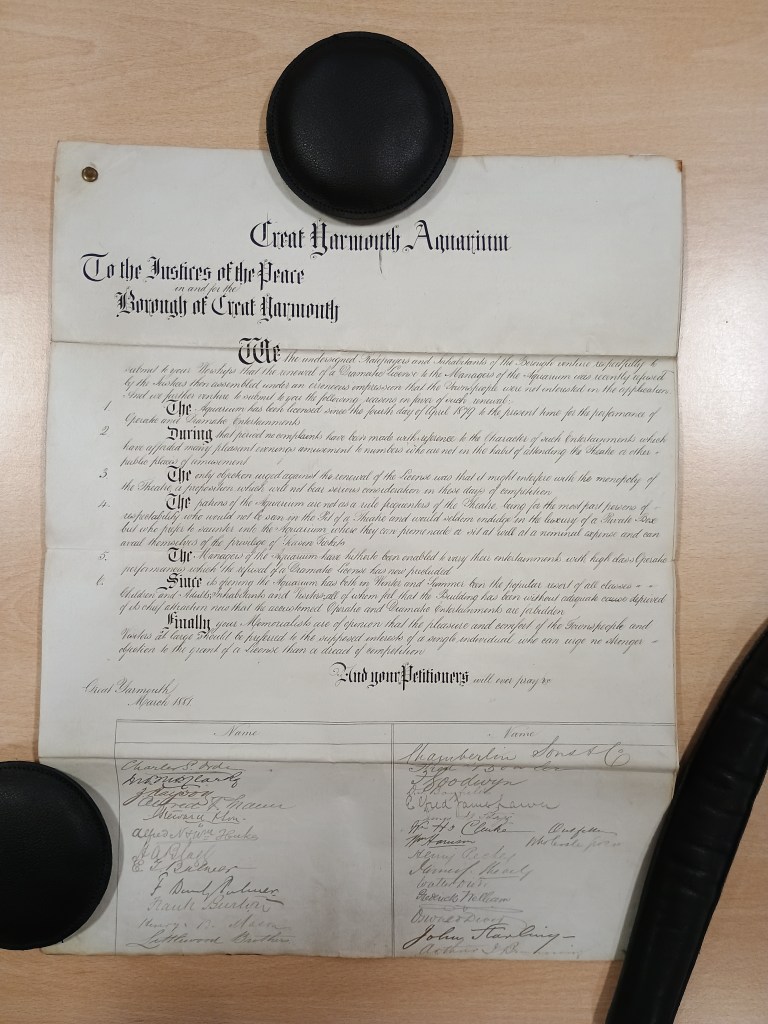 Great Yarmouth Aquarium
To the Justices of the Peace
in and for the
Borough of Great Yarmouth
We the undersigned Ratepayers and Inhabitants of the Borough venture respectfully to
submit to your Worships that the renewal of a Dramatic License to the Managers of the Aquarium was recently refused
by the Justices then assembled under an erroneous impression that the Townspeople were not interested in the application
And we further venture to submit to you the following reasons in favor of such renewal:
1. The Aquarium has been licensed since the fourth day of April 1879 to the present time for the performance of
Operatic and Dramatic Entertainments
2. During that period no complaints have been made with reference to the Character of such Entertainments which
have afforded many pleasant evenings amusement to numbers who are not in the habit of attending the Theatre or other
public places of amusement
3. The only objection urged against the renewal of the License was that it might interfere with the monopoly of
the Theatre, a profession which will not bear serious consideration in these days of competition
4. The patrons of the Aquarium are not as a rule frequenters of the Theatre, being for the most part persons of
respectability who would not be seen in the Pit of a Theatre and would seldom indulge in the luxury of a Private Box
but who prefer to saunter into the Aquarium where they can promenade or sit at will at a nominal expense and can
avail themselves of the privilege of Season Tickets
5. The Managers of the Aquarium have hitherto been enabled to vary their entertainments with high class Operatic
performances which the refusal of a Dramatic License has now precluded
6. Since its opening the Aquarium has both in Winter and Summer been the popular resort of all classes
Children and Adults, Inhabitants and Visitors, all of whom feel that the Building has been without adequate cause deprived
of its chief attraction now that the accustomed Operatic and Dramatic Entertainments are forbidden
Finally your Memorialists are of opinion that the pleasure and comfort of the Townspeople and
Visitors at large should be preferred to the supposed interests of a single individual who can urge no stronger
objection to the grant of a License than a dread of competition
And your Petitioners will ever pray &c
Great Yarmouth
March 1881
Name
Name
Chamberlin Sons & Co
Goodwyn
Clarke
Frank Burton
Littlewood Brothers
John Starling